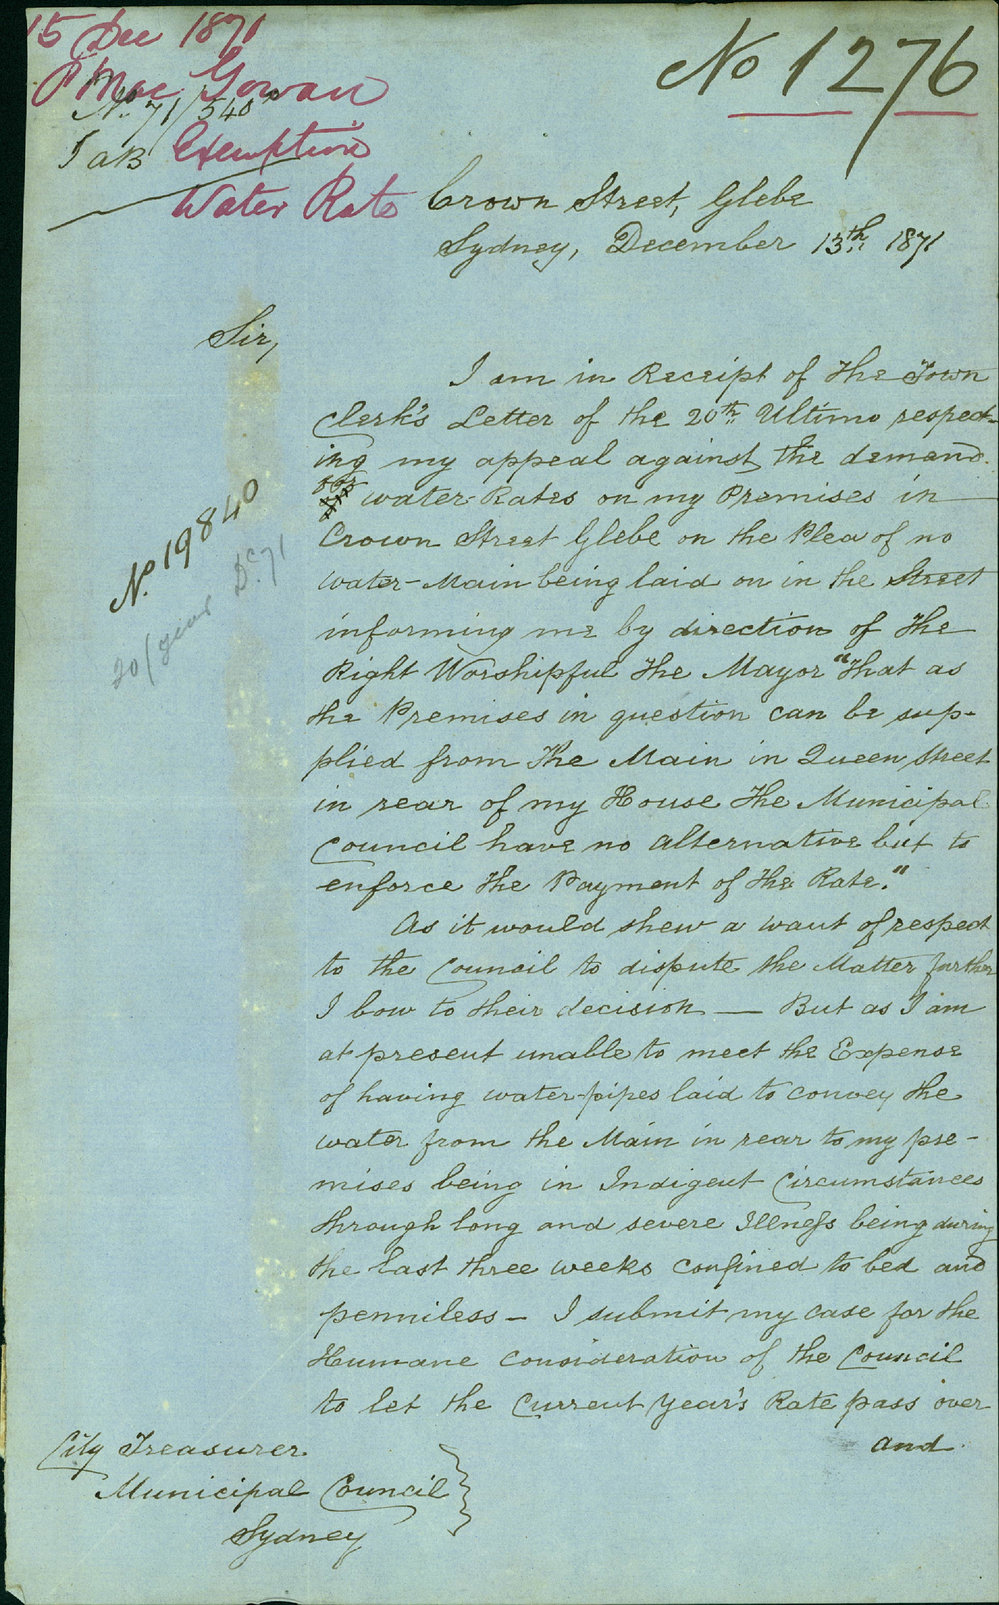 15 Dec 1871
P Mac Gowan
No 71/540
Exemption
Water Rate
No 1276
Crown Street, Glebe
Sydney, December 13th 1871
Sir,
I am in Receipt of the Town
Clerk's Letter of the 20th Ultimo respect-
ing my appeal against the demand
for water-Rates on my Premises in
Crown Street Glebe on the Plea of no
water-Main being laid on in the Street
informing me by direction of the
Right Worshipful the Mayor "that as
the Premises in question can be sup-
plied from the Main in Queen Street
in rear of my House the Municipal
Council have no alternative but to
enforce the Payment of the Rate."
As it would shew a want of respect
to the Council to dispute the Matter further
I bow to their decision — But as I am
at present unable to meet the Expense
of having water-pipes laid to convey the
water from the Main in rear to my pre-
mises being in Indigent Circumstances
through long and severe Illness being during
the last three weeks confined to bed and
penniless — I submit my case for the
Humane consideration of the Council
to let the Current Year's Rate pass over
and
No. 19840
20/ year Dc. 71
City Treasurer
Municipal Council
Sydney